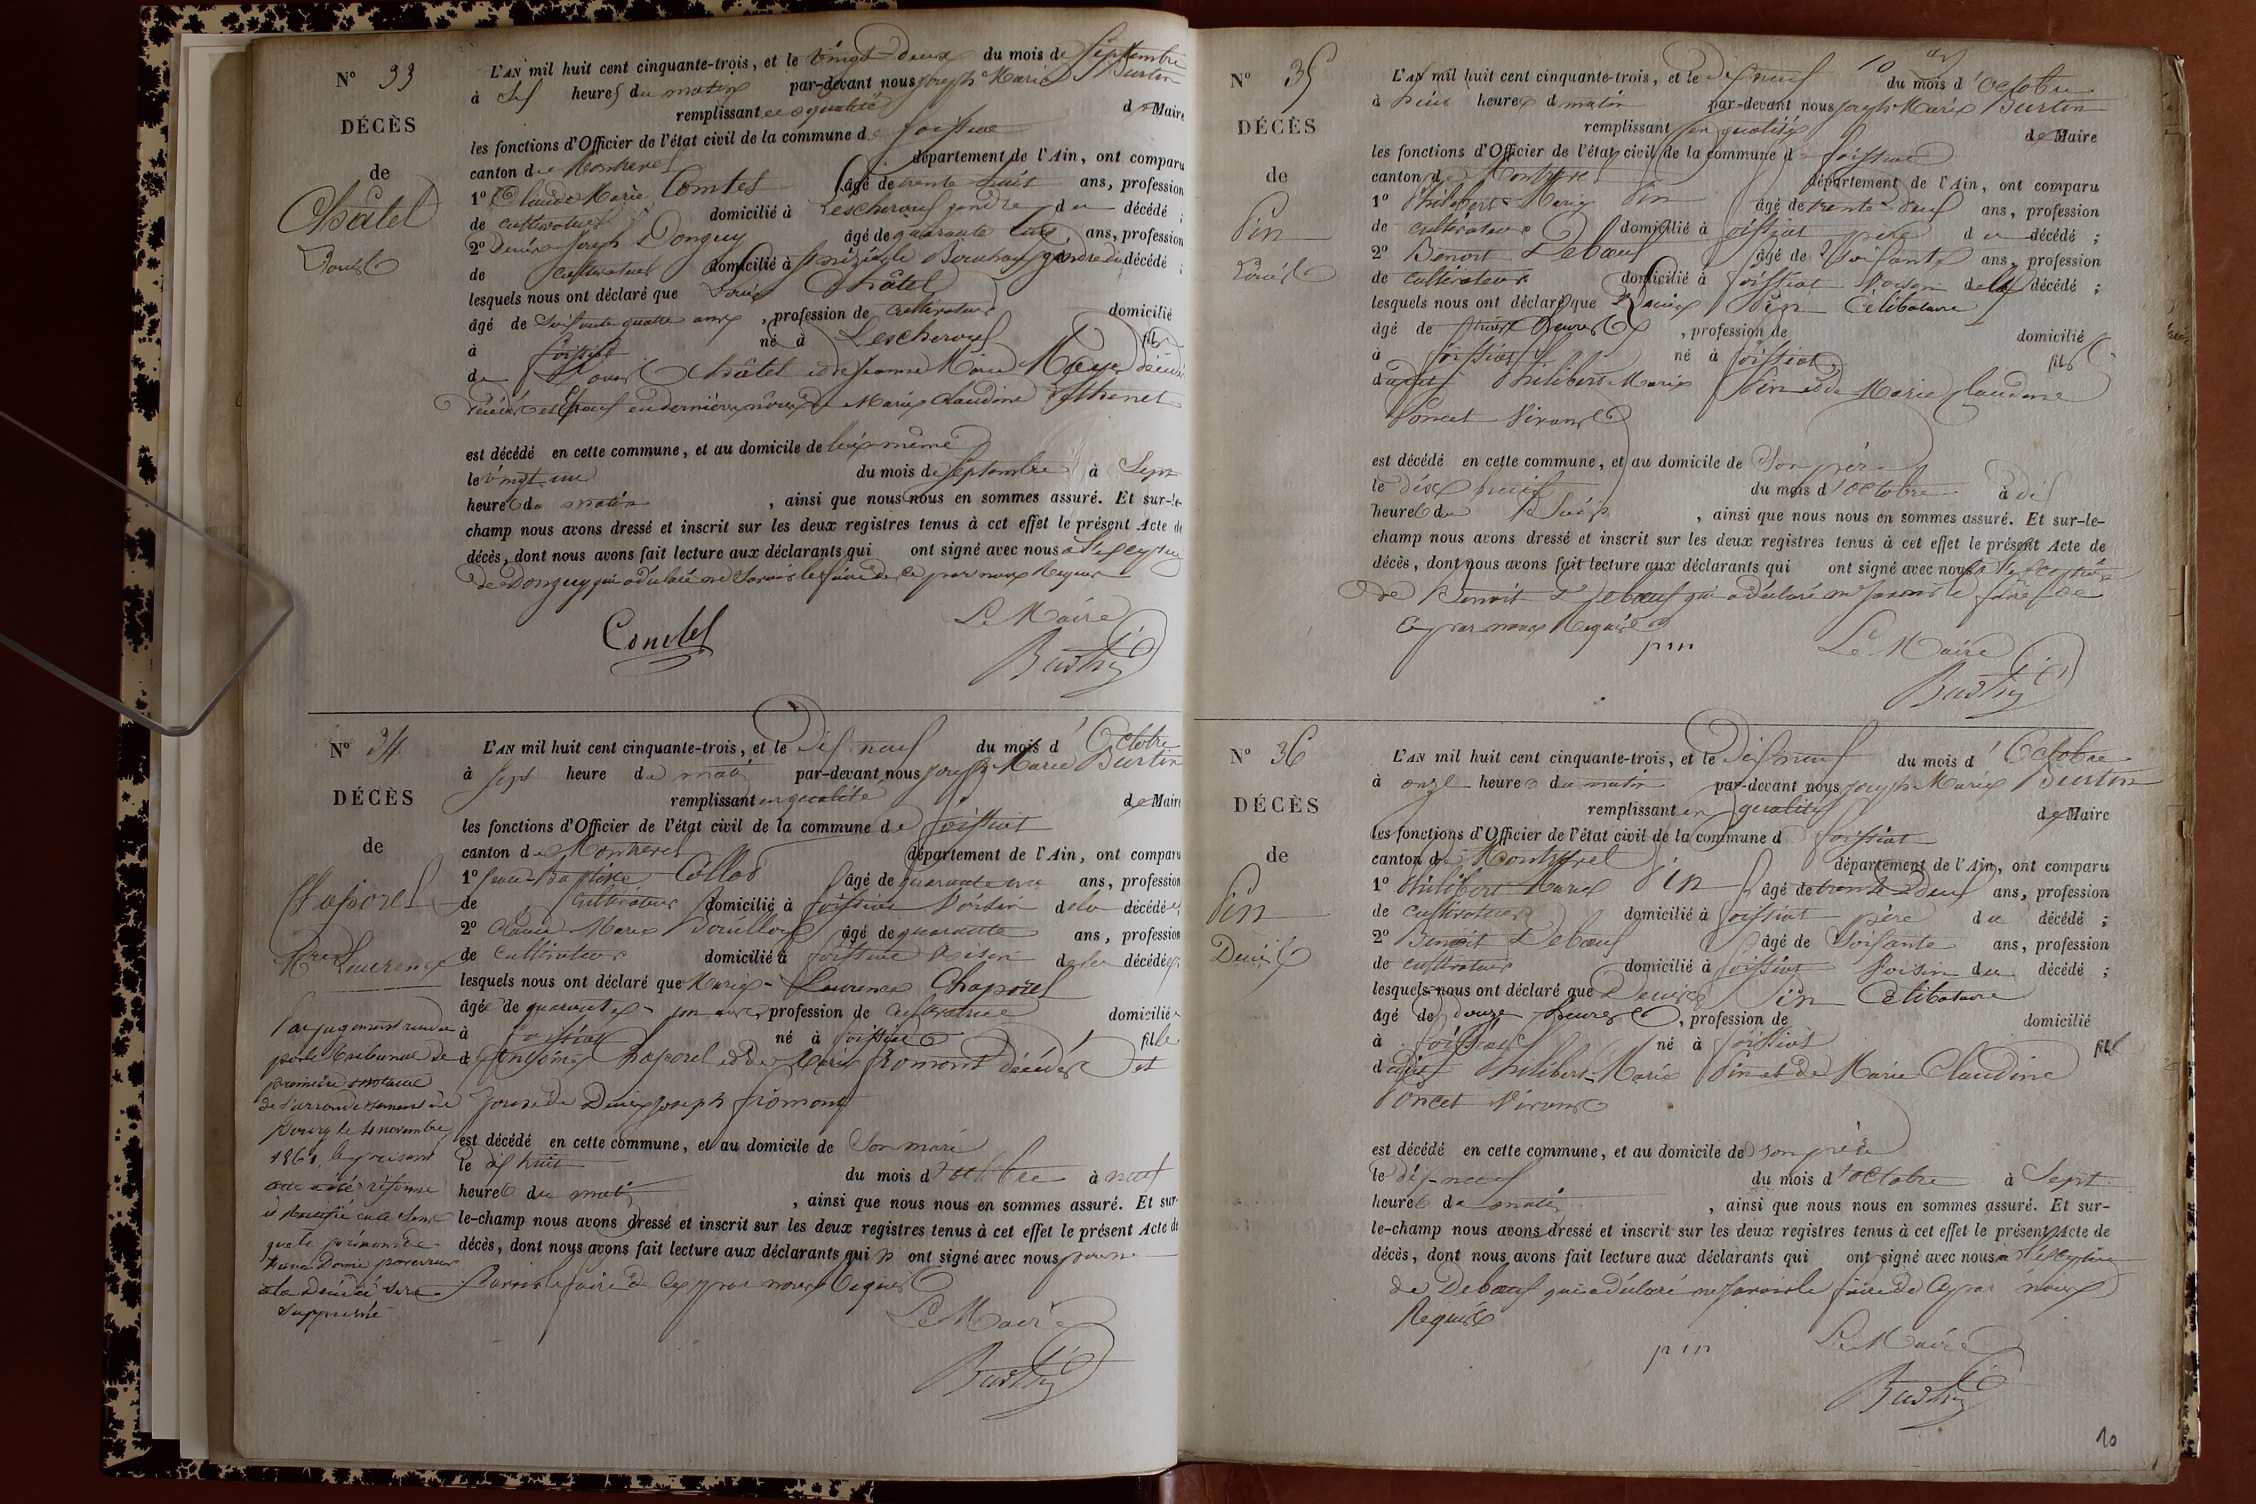 N° 33
DÉCÈS
de
Châtel
Louis
L'AN mil huit cent cinquante-trois, et le vingt deux du mois de Septembre
à dix heures du matin par-devant nous Joseph Marie Burtin
remplissant en qualité de Maire
les fonctions d'Officier de l'état civil de la commune de foissiat
canton de Montrevel département de l'Ain, ont comparu
1° Claude Marie Comtet âgé de trente huit ans, profession
de cultivateur domicilié à Lescheroux gendre du décédé ;
2° Denis Joseph Donguy âgé de quarante ans, profession
de cultivateur domicilié à St nizier le Bouchoux gendre du décédé ;
lesquels nous ont déclaré que Louis Châtel
âgé de soixante quatre ans, profession de cultivateur domicilié
à foissiat né à Lescheroux fils
de Louis Châtel et de Jeanne Marie
décédés et Epoux en dernières noces de Marie Claudine Pothenet
est décédé en cette commune, et au domicile de lui même
le vingt un du mois de Septembre à Sept
heures du matin, ainsi que nous nous en sommes assuré. Et sur-le-
champ nous avons dressé et inscrit sur les deux registres tenus à cet effet le présent Acte de
décès, dont nous avons fait lecture aux déclarants qui ont signé avec nous à l'exception
de Donguy qui a déclaré ne savoir le faire de ce par nous Requis
Le Maire
Comtet
Burtin
N° 34
DÉCÈS
de
Chaporel
Mrie Laurence
Par jugement rendu
par le tribunal de
première instance
de l'arrondissement de
Bourg le 4 novembre
1861, le présent
acte a été réformé
et rectifié en ce sens
que le prénom de
Laurence donné par erreur
à la décédée sera
supprimé
L'AN mil huit cent cinquante-trois, et le dix neuf du mois d'Octobre
à sept heure du matin par-devant nous Joseph Marie Burtin
remplissant en qualité de Maire
les fonctions d'Officier de l'état civil de la commune de foissiat
canton de Montrevel département de l'Ain, ont comparu
1° Jean-Baptiste Collod âgé de quarante ans, profession
de cultivateur domicilié à foissiat Voisin de la décédée ;
2° Claude Marie Bouilloux âgé de quarante ans, profession
de cultivateur domicilié à foissiat Voisin de la décédée ;
lesquels nous ont déclaré que Marie-Laurence Chaporel
âgée de quarante - un ans, profession de cultivatrice domiciliée
à foissiat né à foissiat fille
d'Antoine Chaporel et de Marie fromont décédés et
Epouse de Denis Joseph fromont
est décédé en cette commune, et au domicile de Son mari
le dix huit du mois d'octobre à neuf
heures du matin, ainsi que nous nous en sommes assuré. Et sur-
le-champ nous avons dressé et inscrit sur les deux registres tenus à cet effet le présent Acte de
décès, dont nous avons fait lecture aux déclarants qui n'ont signé avec nous pour ne
Savoir le faire de ce par nous Requis
Le Maire
Burtin
N° 35
DÉCÈS
de
Pin
Louis
L'AN mil huit cent cinquante-trois, et le dix neuf du mois d'Octobre
à heures du matin par-devant nous Joseph Marie Burtin
remplissant en qualité de Maire
les fonctions d'Officier de l'état civil de la commune de foissiat
canton de Montrevel département de l'Ain, ont comparu
1° Philibert Marie Pin âgé de trente deux ans, profession
de cultivateur domicilié à foissiat père du décédé ;
2° Benoit Debœuf âgé de Soixante ans, profession
de cultivateur domicilié à foissiat Voisin du décédé ;
lesquels nous ont déclaré que Louis Pin Célibataire
âgé de heures, profession de domicilié
à foissiat né à foissiat fils
dudit Philibert Marie Pin et de Marie Claudine
Poncet Vivans
est décédé en cette commune, et au domicile de Son père
le dix huit du mois d'octobre à dix
heures du Soir, ainsi que nous nous en sommes assuré. Et sur-le-
champ nous avons dressé et inscrit sur les deux registres tenus à cet effet le présent Acte de
décès, dont nous avons fait lecture aux déclarants qui ont signé avec nous à l'exception
de Benoit Debœuf qui a déclaré ne savoir le faire de
ce par nous Requis
pin
Le Maire
Burtin
N° 36
DÉCÈS
de
Pin
Denis
L'AN mil huit cent cinquante-trois, et le Dix neuf du mois d'Octobre
à onze heures du matin par-devant nous Joseph Marie Burtin
remplissant en qualité de Maire
les fonctions d'Officier de l'état civil de la commune d foissiat
canton de Montrevel département de l'Ain, ont comparu
1° Philibert Marie Pin âgé de trente deux ans, profession
de cultivateur domicilié à foissiat père du décédé ;
2° Benoit Debœuf âgé de Soixante ans, profession
de cultivateur domicilié à foissiat Voisin du décédé ;
lesquels nous ont déclaré que Denis Pin Célibataire
âgé de douze heures, profession de domicilié
à foissiat né à foissiat fils
dudit Philibert-Marie Pin et de Marie Claudine
Poncet Vivans
est décédé en cette commune, et au domicile de son père
le dix-neuf du mois d'octobre à Sept
heures du matin, ainsi que nous nous en sommes assuré. Et sur-
le-champ nous avons dressé et inscrit sur les deux registres tenus à cet effet le présent Acte de
décès, dont nous avons fait lecture aux déclarants qui ont signé avec nous à l'exception
de Debœuf qui a déclaré ne savoir le faire de ce par nous
Requis
pin
Le Maire
Burtin
10